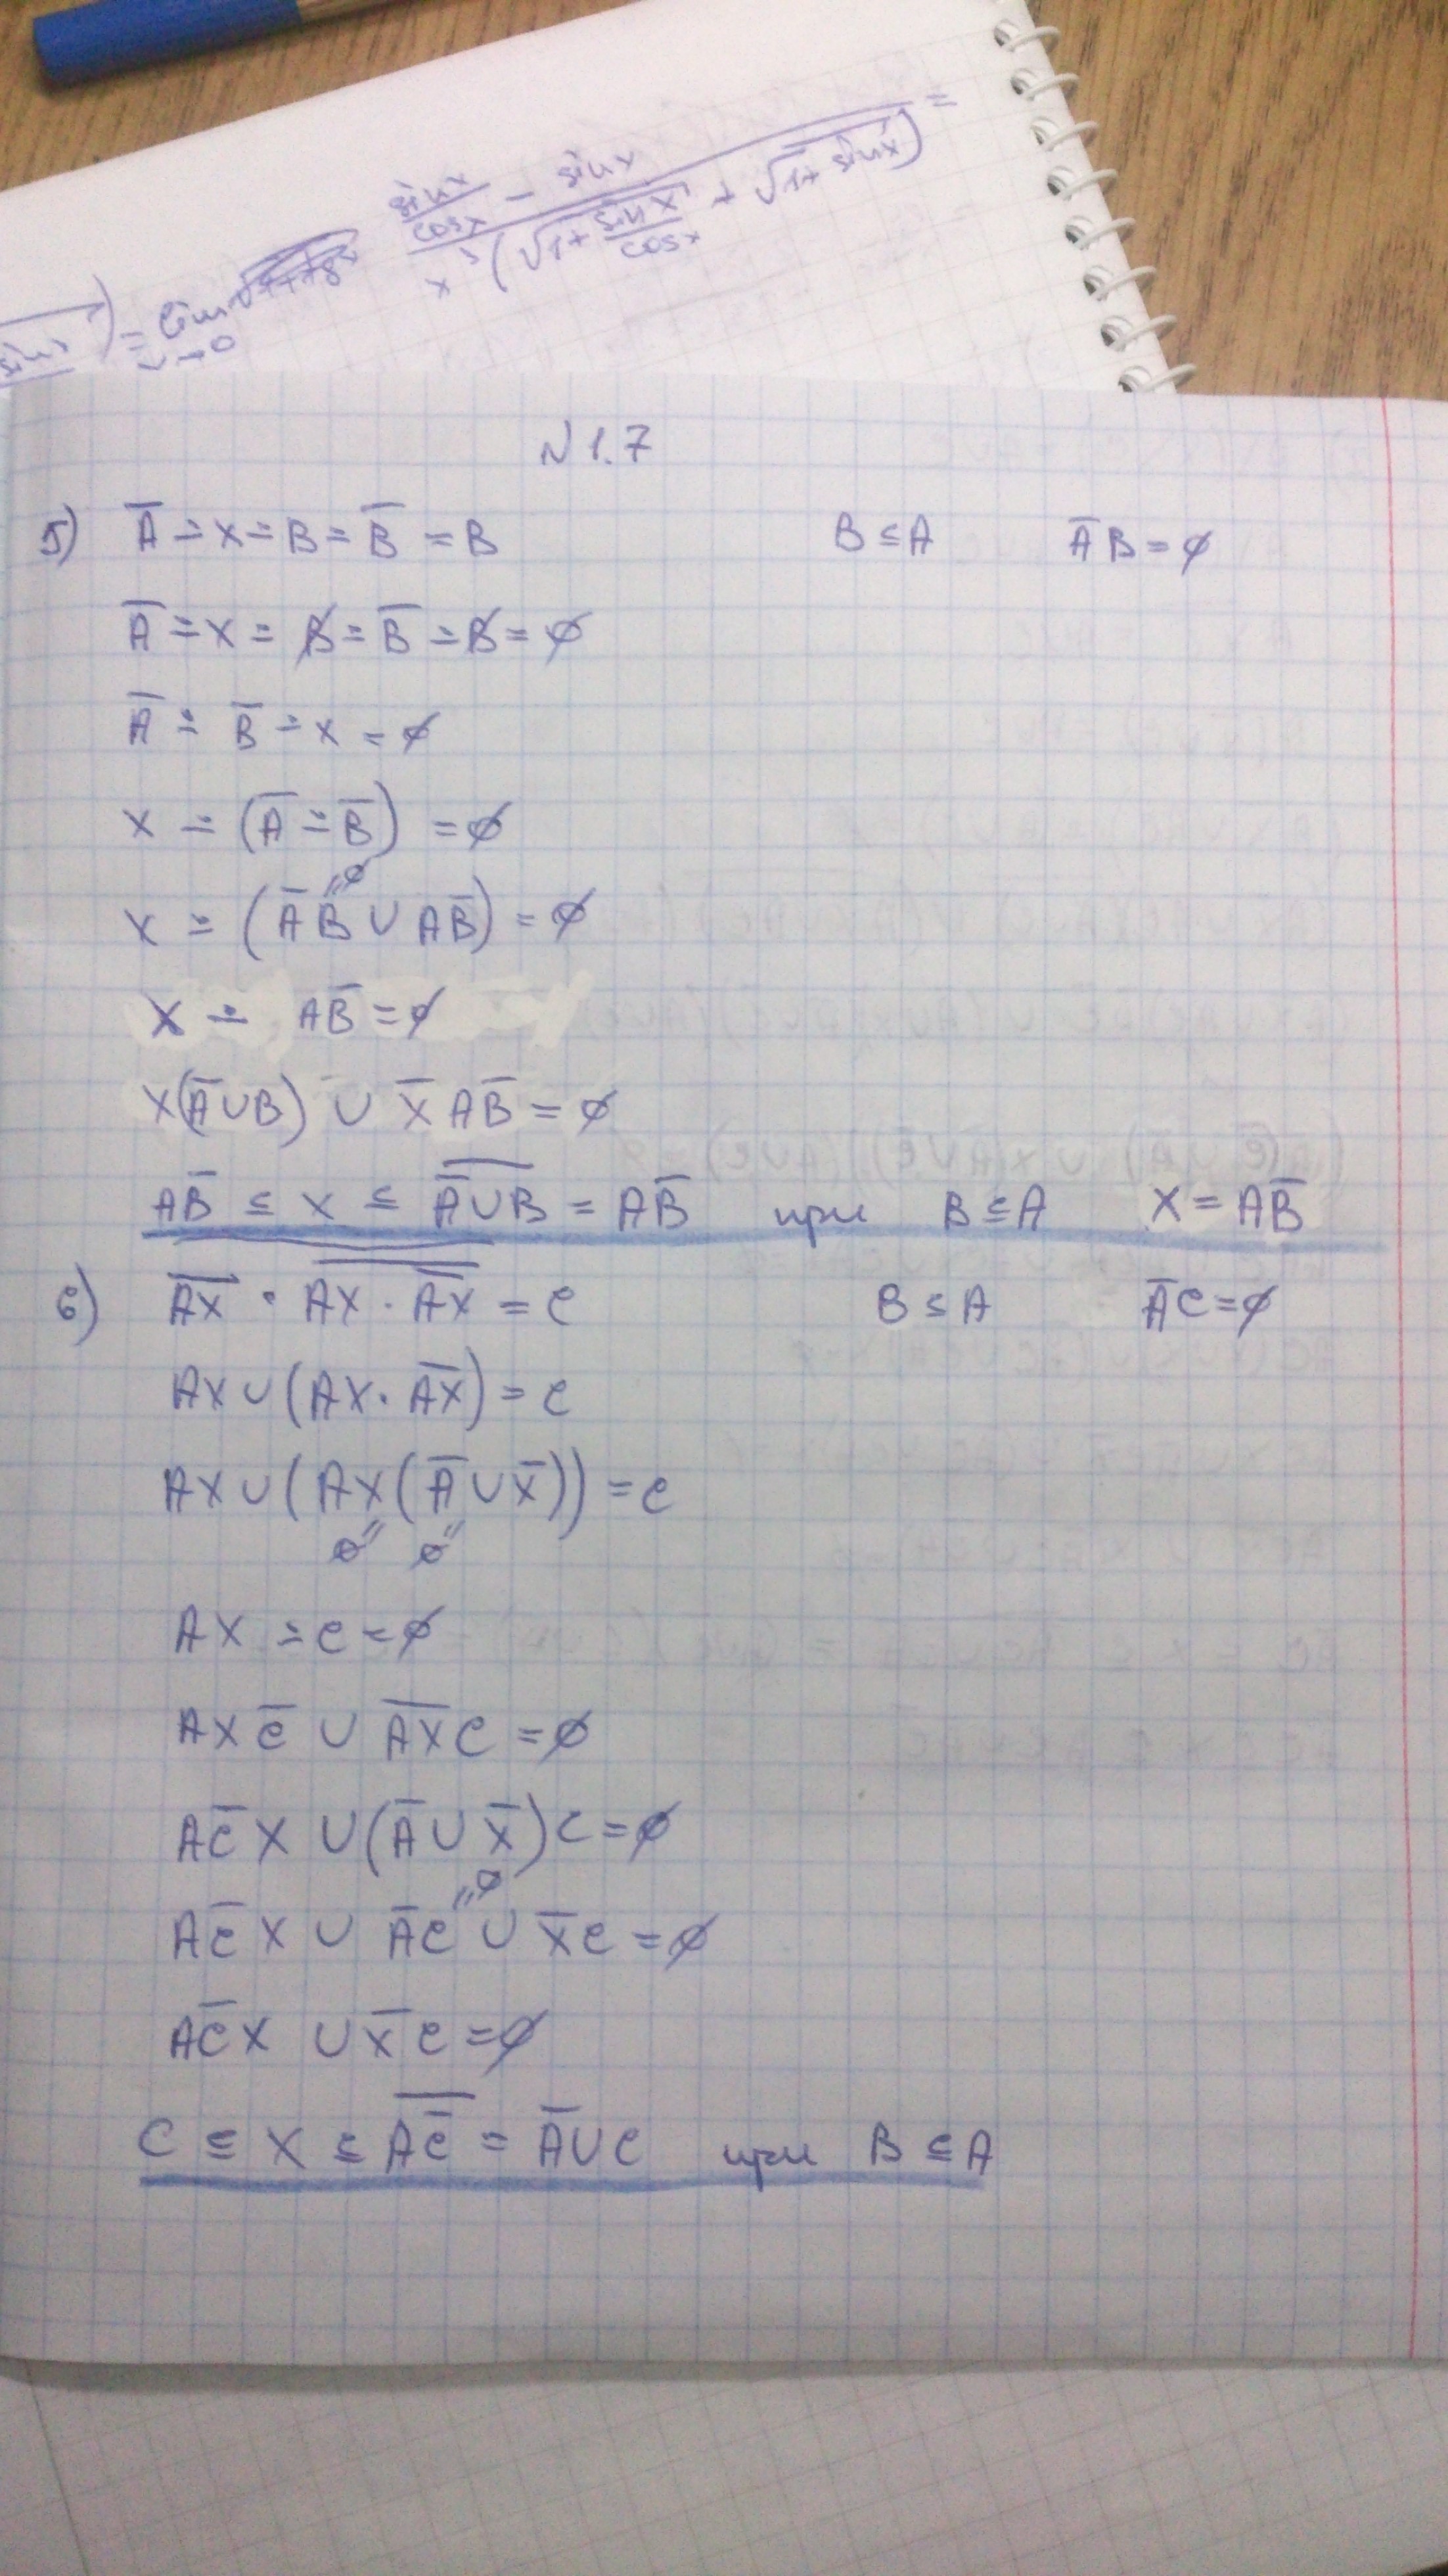 sinx/cosx − sinx =
sinx) = lim x→0 x³(√1+ sinx/cosx + √1+sinx)
N 1.7
5) A̅ ∸ x ∸ B ∸ B̅ = B B ⊆ A A̅B = ∅
A̅ ∸ x ∸ B ∸ B̅ ∸ B = ∅
A̅ ∸ B̅ ∸ x = ∅
x ∸ (A̅ ∸ B̅) = ∅
x ∸ (A̅B ∪ AB̅) = ∅
"∅
x ∸ AB̅ = ∅
x(A̅∪B) ∪ x̅AB̅ = ∅
AB̅ ⊆ x ⊆ \overline{A̅∪B} = AB̅ при B ⊆ A x = AB̅
6) \overline{\overline{AX} · \overline{AX · \overline{AX}}} = C B ⊆ A A̅C = ∅
AX ∪ (AX · \overline{AX}) = C
AX ∪ (AX(A̅ ∪ X̅)) = C
∅" ∅"
AX ∸ C = ∅
AXC̅ ∪ \overline{AX}C = ∅
AC̅X ∪ (A̅ ∪ X̅)C = ∅
AC̅X ∪ A̅C ∪ X̅C = ∅
"∅
AC̅X ∪ X̅C = ∅
C ⊆ X ⊆ \overline{AC̅} = A̅∪C при B ⊆ A